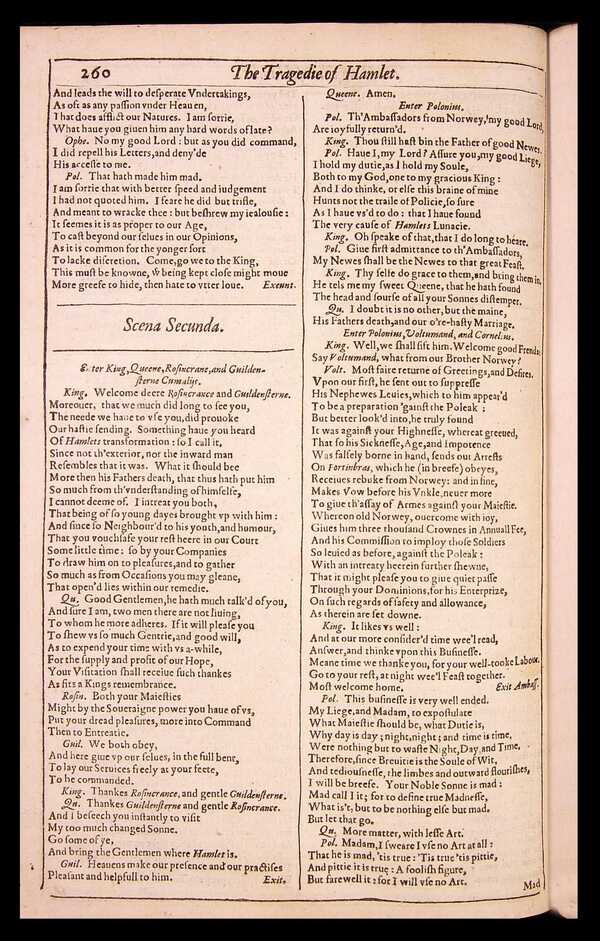 260
The Tragedie of Hamlet.
And leads the will to desperate Vndertakings,
As oft as any passion vnder Heauen,
That does afflict our Natures. I am sorrie,
What haue you giuen him any hard words of late?
Ophe. No my good Lord: but as you did command,
I did repell his Letters, and deny'de
His accesse to me.
Pol. That hath made him mad.
I am sorrie that with better speed and iudgement
I had not quoted him. I feare he did but trifle,
And meant to wracke thee: but beshrew my iealousie:
It seemes it is as proper to our Age,
To cast beyond our selues in our Opinions,
As it is common for the yonger sort
To lacke discretion. Come, go we to the King,
This must be knowne, wͨ being kept close might moue
More greefe to hide, then hate to vtter loue. Exeunt.
Scena Secunda.
Enter King, Queene, Rosincrane, and Guilden-
sterne Cumalijs.
King. Welcome deere Rosincrance and Guildensterne.
Moreouer, that we much did long to see you,
The neede we haue to vse you, did prouoke
Our hastie sending. Something haue you heard
Of Hamlets transformation: so I call it,
Since not th'exterior, nor the inward man
Resembles that it was. What it should bee
More then his Fathers death, that thus hath put him
So much from th'vnderstanding of himselfe,
I cannot deeme of. I intreat you both,
That being of so young dayes brought vp with him:
And since so Neighbour'd to his youth, and humour,
That you vouchsafe your rest heere in our Court
Some little time: so by your Companies
To draw him on to pleasures, and to gather
So much as from Occasions you may gleane,
That open'd lies within our remedie.
Qu. Good Gentlemen, he hath much talk'd of you,
And sure I am, two men there are not liuing,
To whom he more adheres. If it will please you
To shew vs so much Gentrie, and good will,
As to expend your time with vs a-while,
For the supply and profit of our Hope,
Your Visitation shall receiue such thankes
As fits a Kings remembrance.
Rosin. Both your Maiesties
Might by the Soueraigne power you haue of vs,
Put your dread pleasures, more into Command
Then to Entreatie.
Guil. We both obey,
And here giue vp our selues, in the full bent,
To lay our Seruices freely at your feete,
To be commanded.
King. Thankes Rosincrance, and gentle Guildensterne.
Qu. Thankes Guildensterne and gentle Rosincrance.
And I beseech you instantly to visit
My too much changed Sonne.
Go some of ye,
And bring the Gentlemen where Hamlet is.
Guil. Heauens make our presence and our practises
Pleasant and helpfull to him. Exit.
Queene. Amen.
Enter Polonius.
Pol. Th'Ambassadors from Norwey, my good Lord,
Are ioyfully return'd.
King. Thou still hast bin the Father of good Newes.
Pol. Haue I, my Lord? Assure you, my good Liege,
I hold my dutie, as I hold my Soule,
Both to my God, one to my gracious King:
And I do thinke, or else this braine of mine
Hunts not the traile of Policie, so sure
As I haue vs'd to do: that I haue found
The very cause of Hamlets Lunacie.
King. Oh speake of that, that I do long to heare.
Pol. Giue first admittance to th'Ambassadors,
My Newes shall be the Newes to that great Feast.
King. Thy selfe do grace to them, and bring them in.
He tels me my sweet Queene, that he hath found
The head and sourse of all your Sonnes distemper.
Qu. I doubt it is no other, but the maine,
His Fathers death, and our o're-hasty Marriage.
Enter Polonius, Voltumand, and Cornelius.
King. Well, we shall sift him. Welcome good Frends:
Say Voltumand, what from our Brother Norwey?
Volt. Most faire returne of Greetings, and Desires.
Vpon our first, he sent out to suppresse
His Nephewes Leuies, which to him appear'd
To be a preparation 'gainst the Poleak:
But better look'd into, he truly found
It was against your Highnesse, whereat greeued,
That so his Sicknesse, Age, and Impotence
Was falsely borne in hand, sends out Arrests
On Fortinbras, which he (in breefe) obeyes,
Receiues rebuke from Norwey: and in fine,
Makes Vow before his Vnkle, neuer more
To giue th'assay of Armes against your Maiestie.
Whereon old Norwey, ouercome with ioy,
Giues him three thousand Crownes in Annuall Fee,
And his Commission to imploy those Soldiers
So leuied as before, against the Poleak:
With an intreaty heerein further shewne,
That it might please you to giue quiet passe
Through your Dominions, for his Enterprize,
On such regards of safety and allowance,
As therein are set downe.
King. It likes vs well:
And at our more consider'd time wee'l read,
Answer, and thinke vpon this Businesse.
Meane time we thanke you, for your well-tooke Labour.
Go to your rest, at night wee'l Feast together.
Most welcome home. Exit Ambass.
Pol. This businesse is very well ended.
My Liege, and Madam, to expostulate
What Maiestie should be, what Dutie is,
Why day is day; night, night; and time is time,
Were nothing but to waste Night, Day, and Time.
Therefore, since Breuitie is the Soule of Wit,
And tediousnesse, the limbes and outward flourishes,
I will be breefe. Your Noble Sonne is mad:
Mad call I it; for to define true Madnesse,
What is't, but to be nothing else but mad.
But let that go.
Qu. More matter, with lesse Art.
Pol. Madam, I sweare I vse no Art at all:
That he is mad, 'tis true: 'Tis true 'tis pittie,
And pittie it is true: A foolish figure,
But farewell it: for I will vse no Art.
Mad